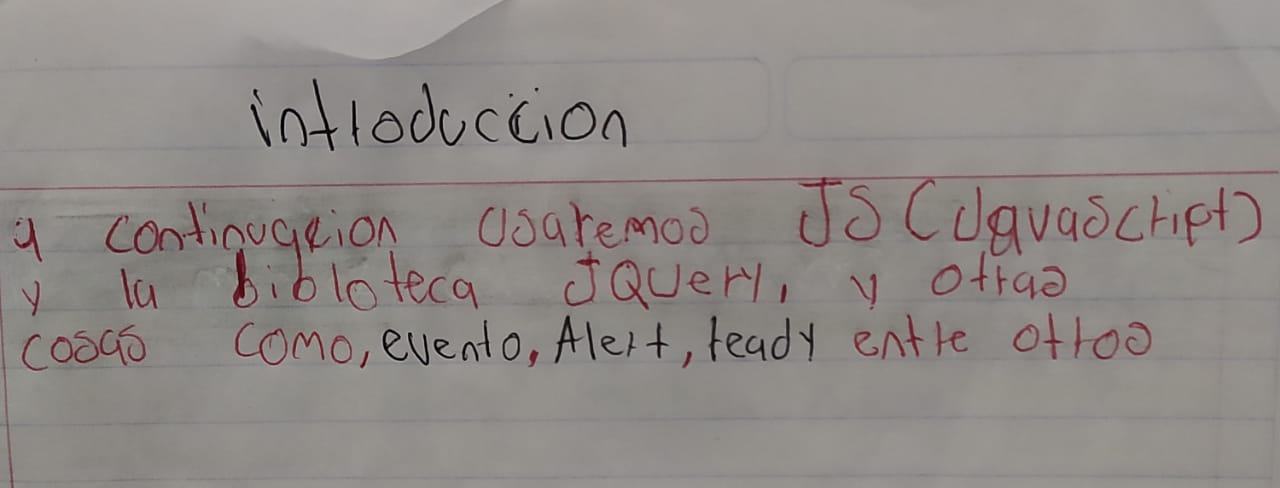 introduccion
a continuacion usaremos JS (JavaScript)
y la bibloteca JQuery, y otras
cosas como, evento, Alert, ready entre otros